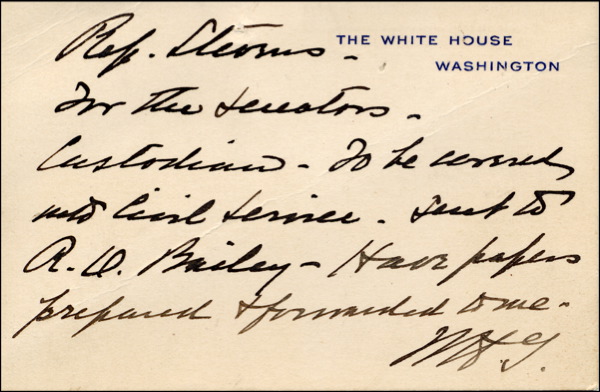 Rep. Stevens -
THE WHITE HOUSE
WASHINGTON
For the Senators -
Custodian - To be covered
into Civil Service. Sent to
R. O. Bailey - Have papers
prepared & forwarded to me -